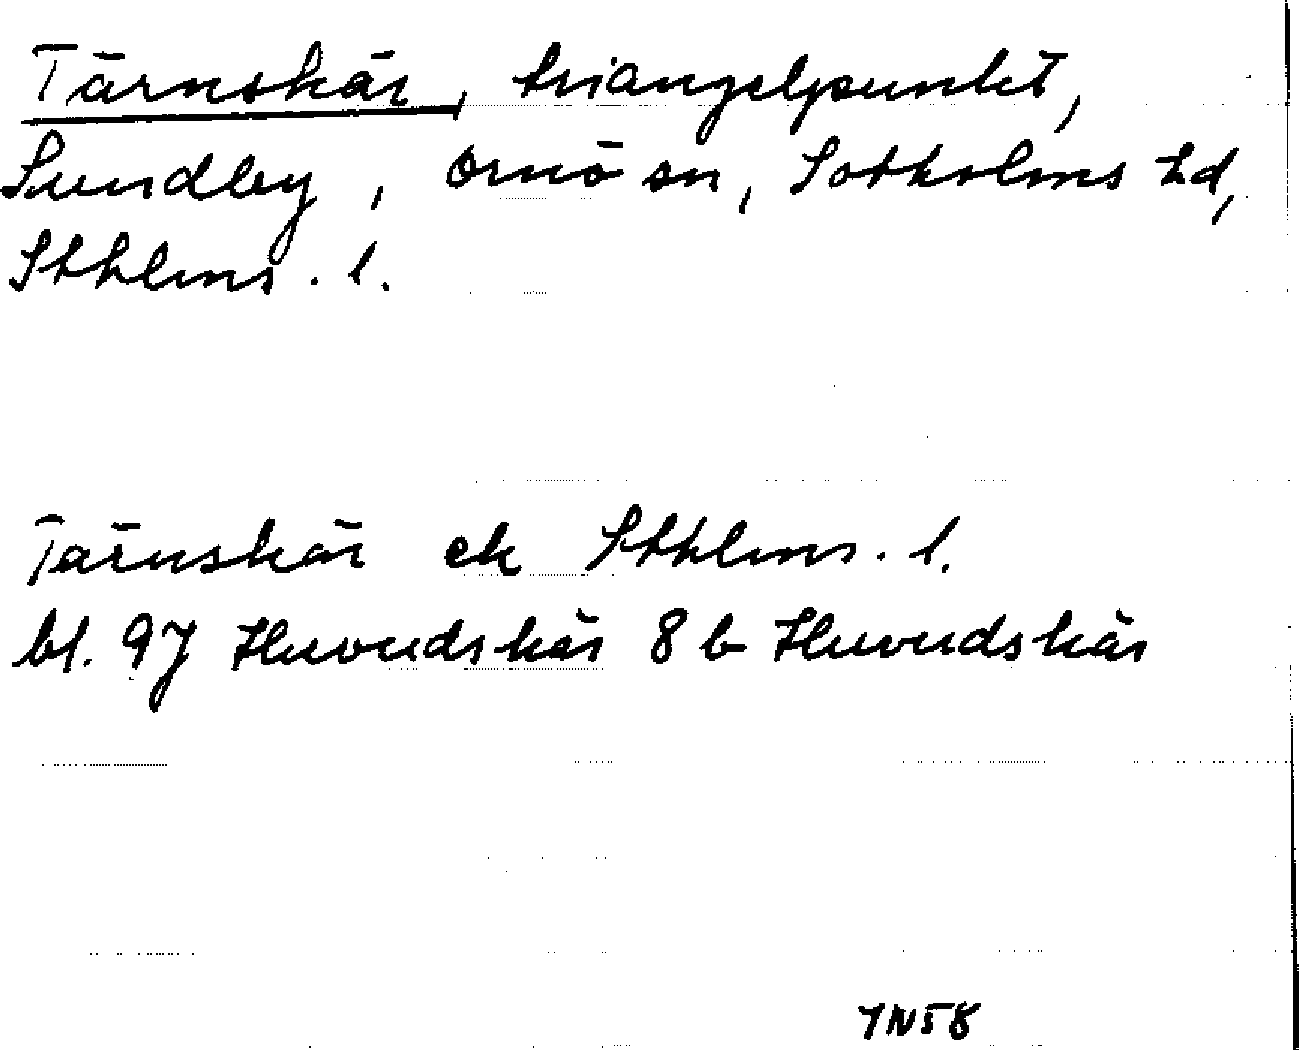 Tärnskär, triangelpunkt,
Sundby, Ornö sn, Sotholms hd,
Sthlms. l.
Tärnskär ek Sthlms. l.
bl. 97 Huvudskär 8 b Huvudskär
YN58